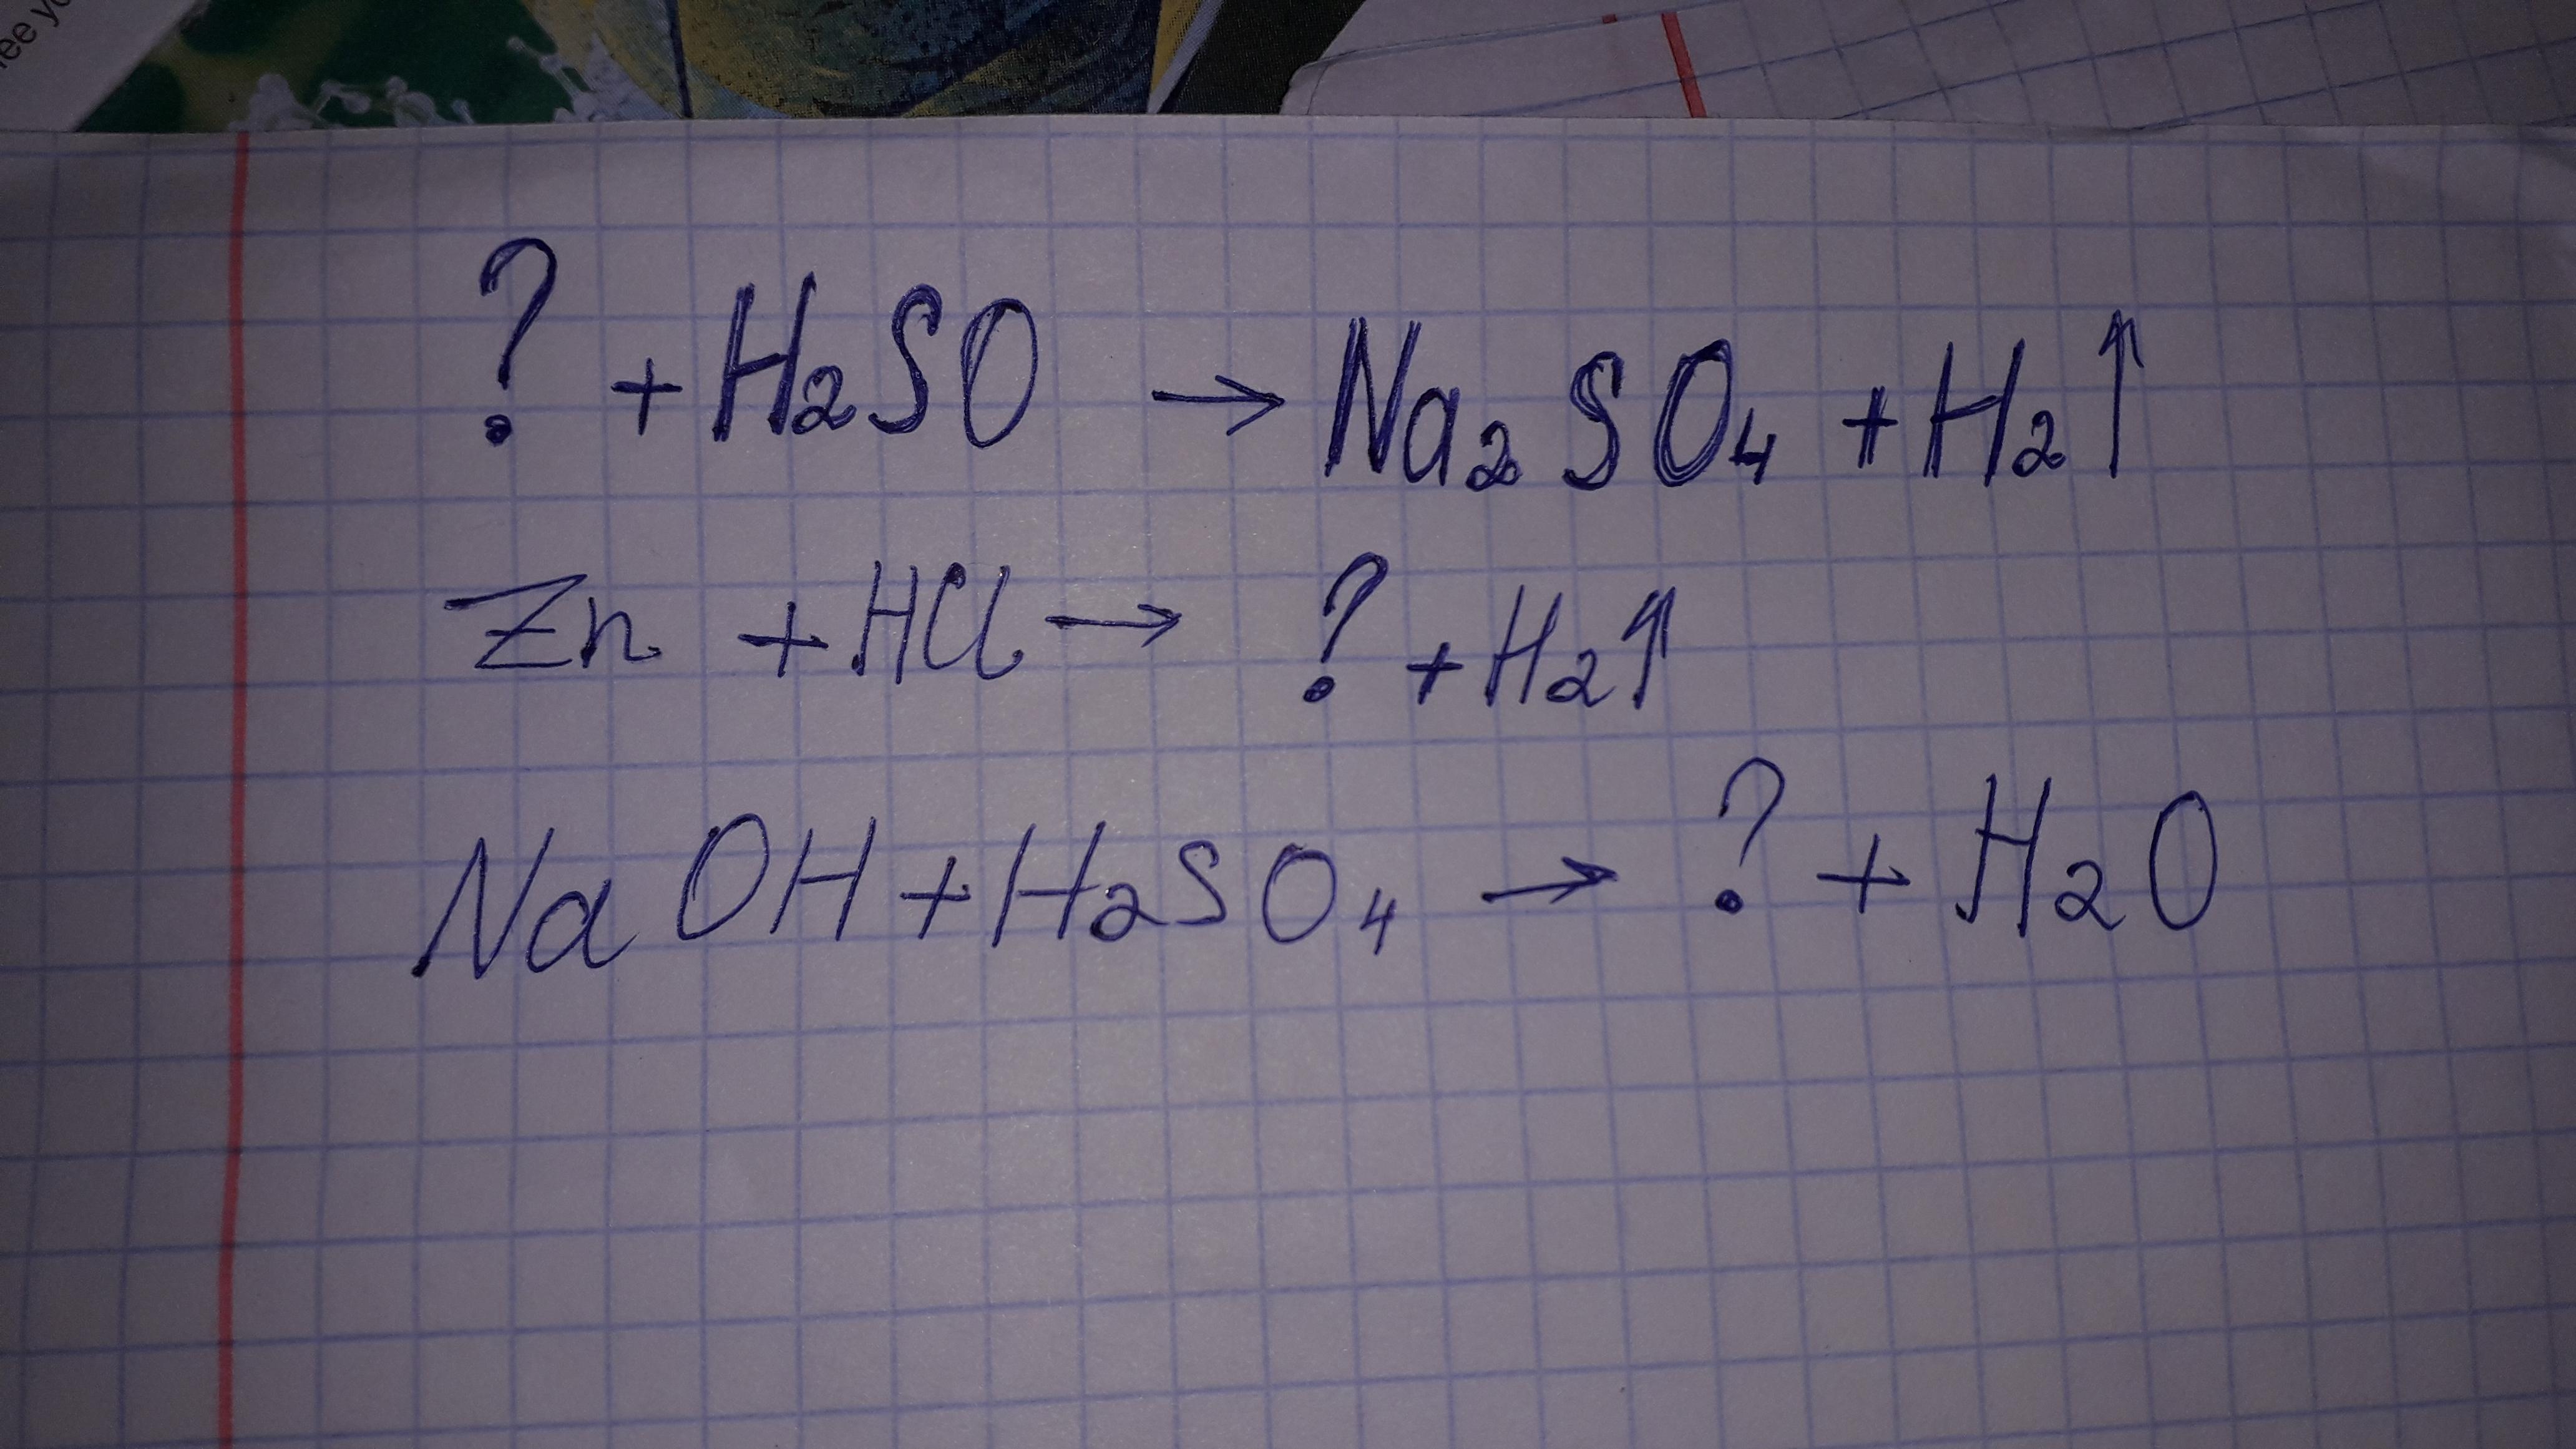 ? + H₂SO → Na₂SO₄ + H₂↑
Zn + HCl → ? + H₂↑
NaOH + H₂SO₄ → ? + H₂O